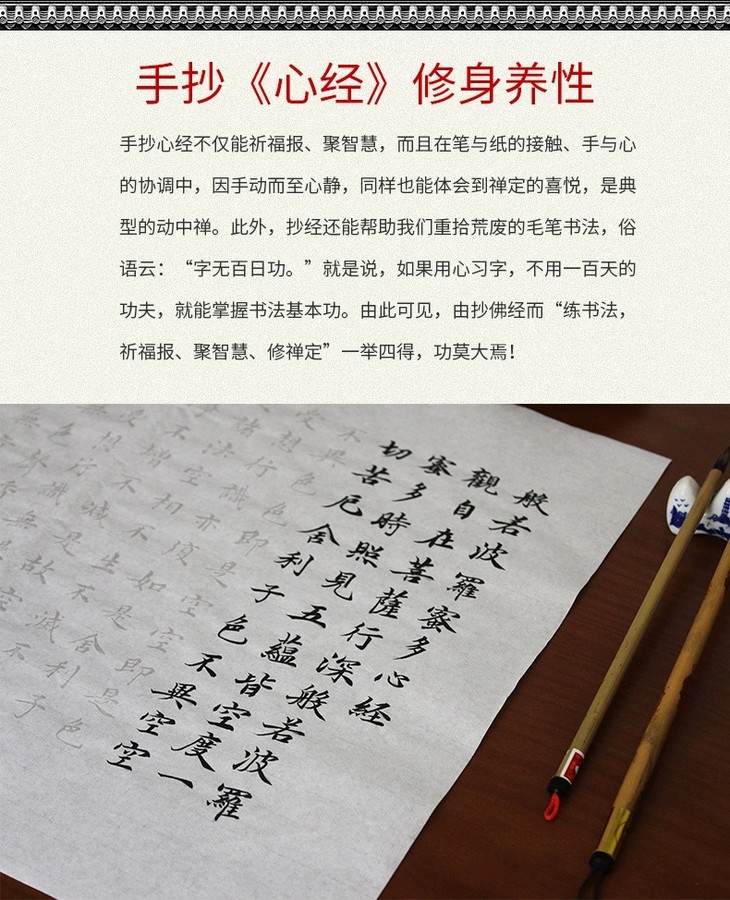 手抄《心经》修身养性
手抄心经不仅能祈福报、聚智慧，而且在笔与纸的接触、手与心
的协调中，因手动而至心静，同样也能体会到禅定的喜悦，是典
型的动中禅。此外，抄经还能帮助我们重拾荒废的毛笔书法，俗
语云：“字无百日功。”就是说，如果用心习字，不用一百天的
功夫，就能掌握书法基本功。由此可见，由抄佛经而“练书法，
祈福报、聚智慧、修禅定”一举四得，功莫大焉！
般若波羅蜜多心經
觀自在菩薩行深般若波羅
蜜多時照見五蘊皆空度一
切苦厄舍利子色不異空空
不異色色即是空空即是色